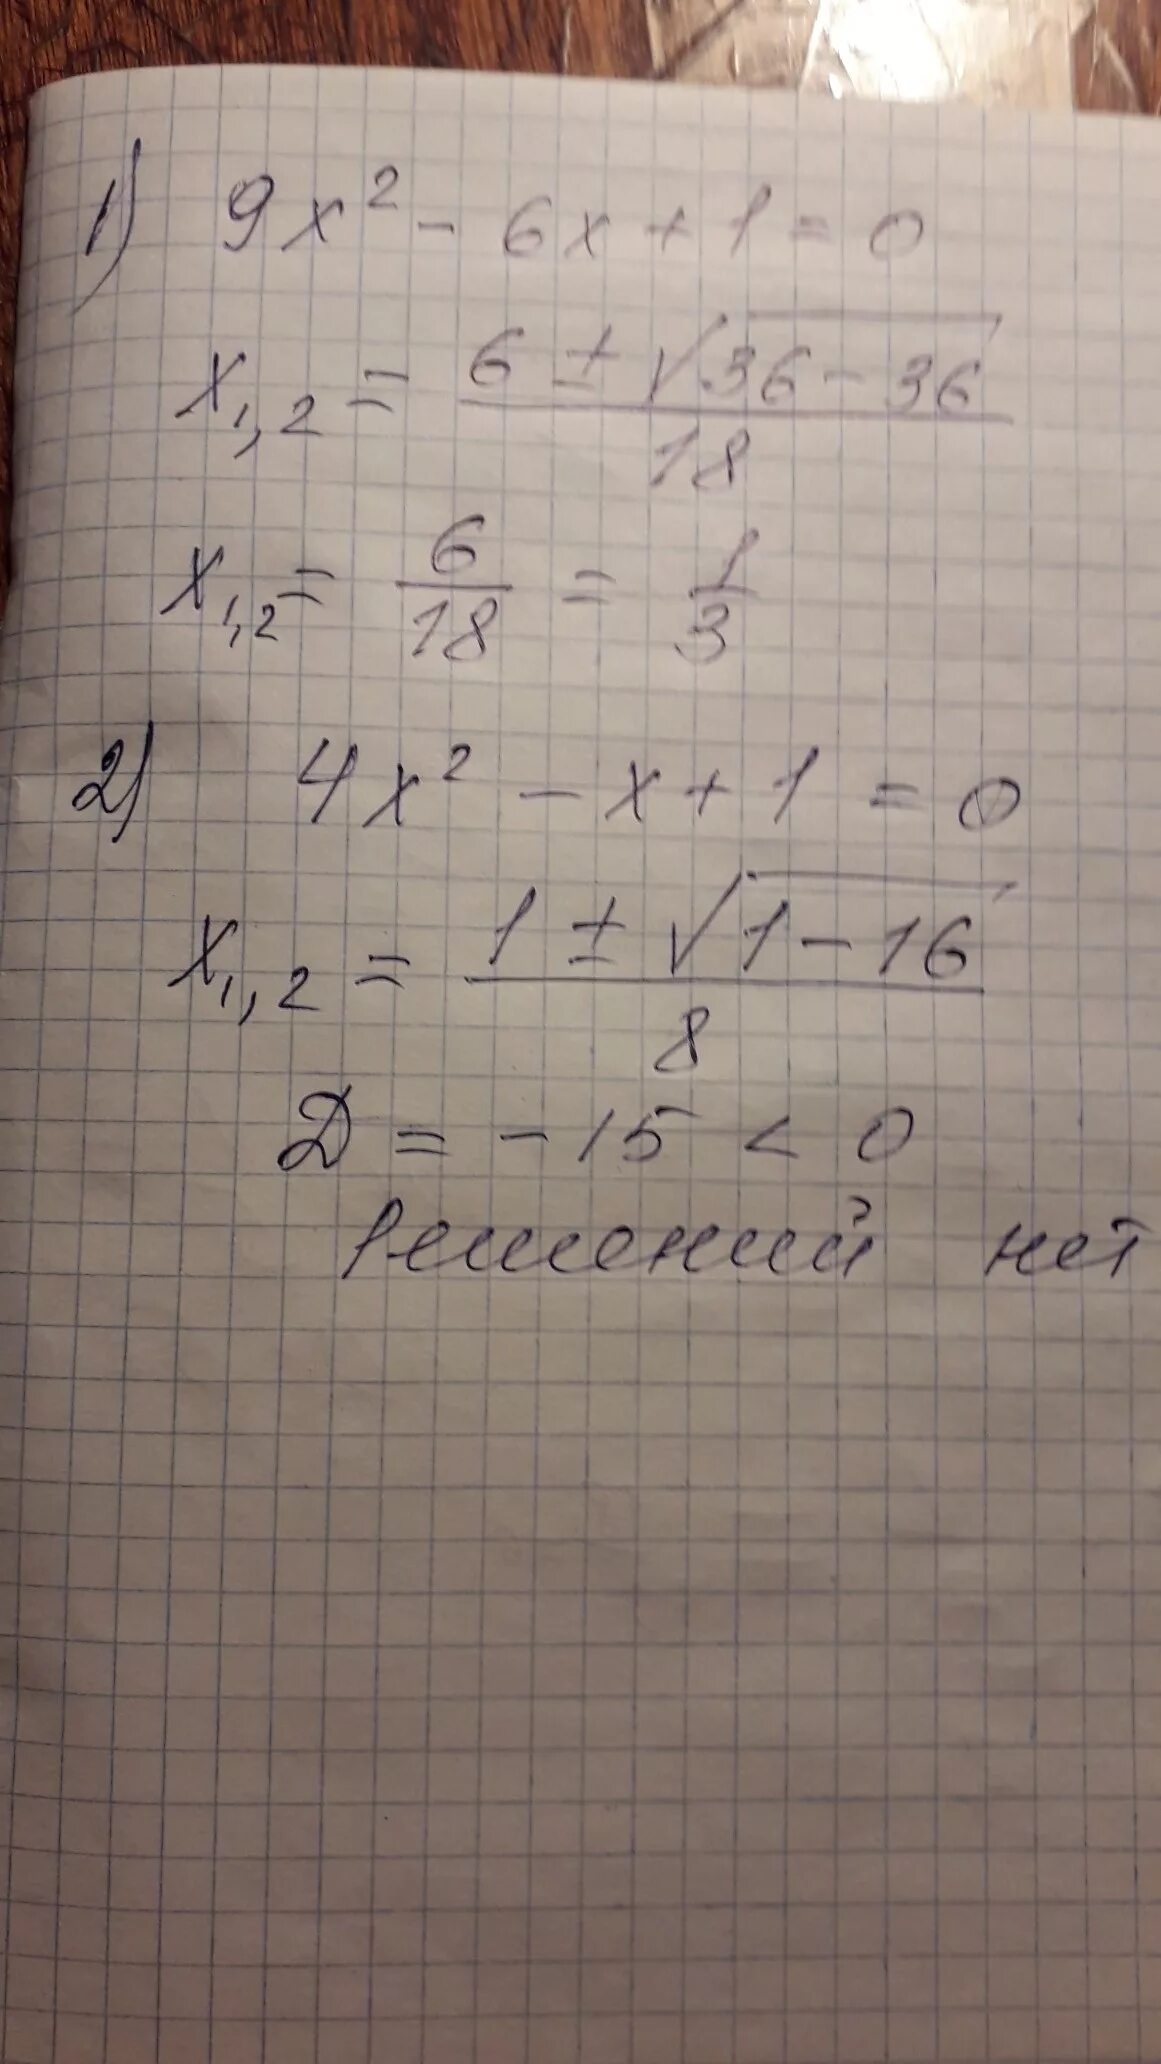 1) 9x² - 6x + 1 = 0
x₁,₂ = (6 ± √(36 - 36)) / 18
x₁,₂ = 6/18 = 1/3
2) 4x² - x + 1 = 0
x₁,₂ = (1 ± √(1 - 16)) / 8
Д = -15 < 0
Решений нет